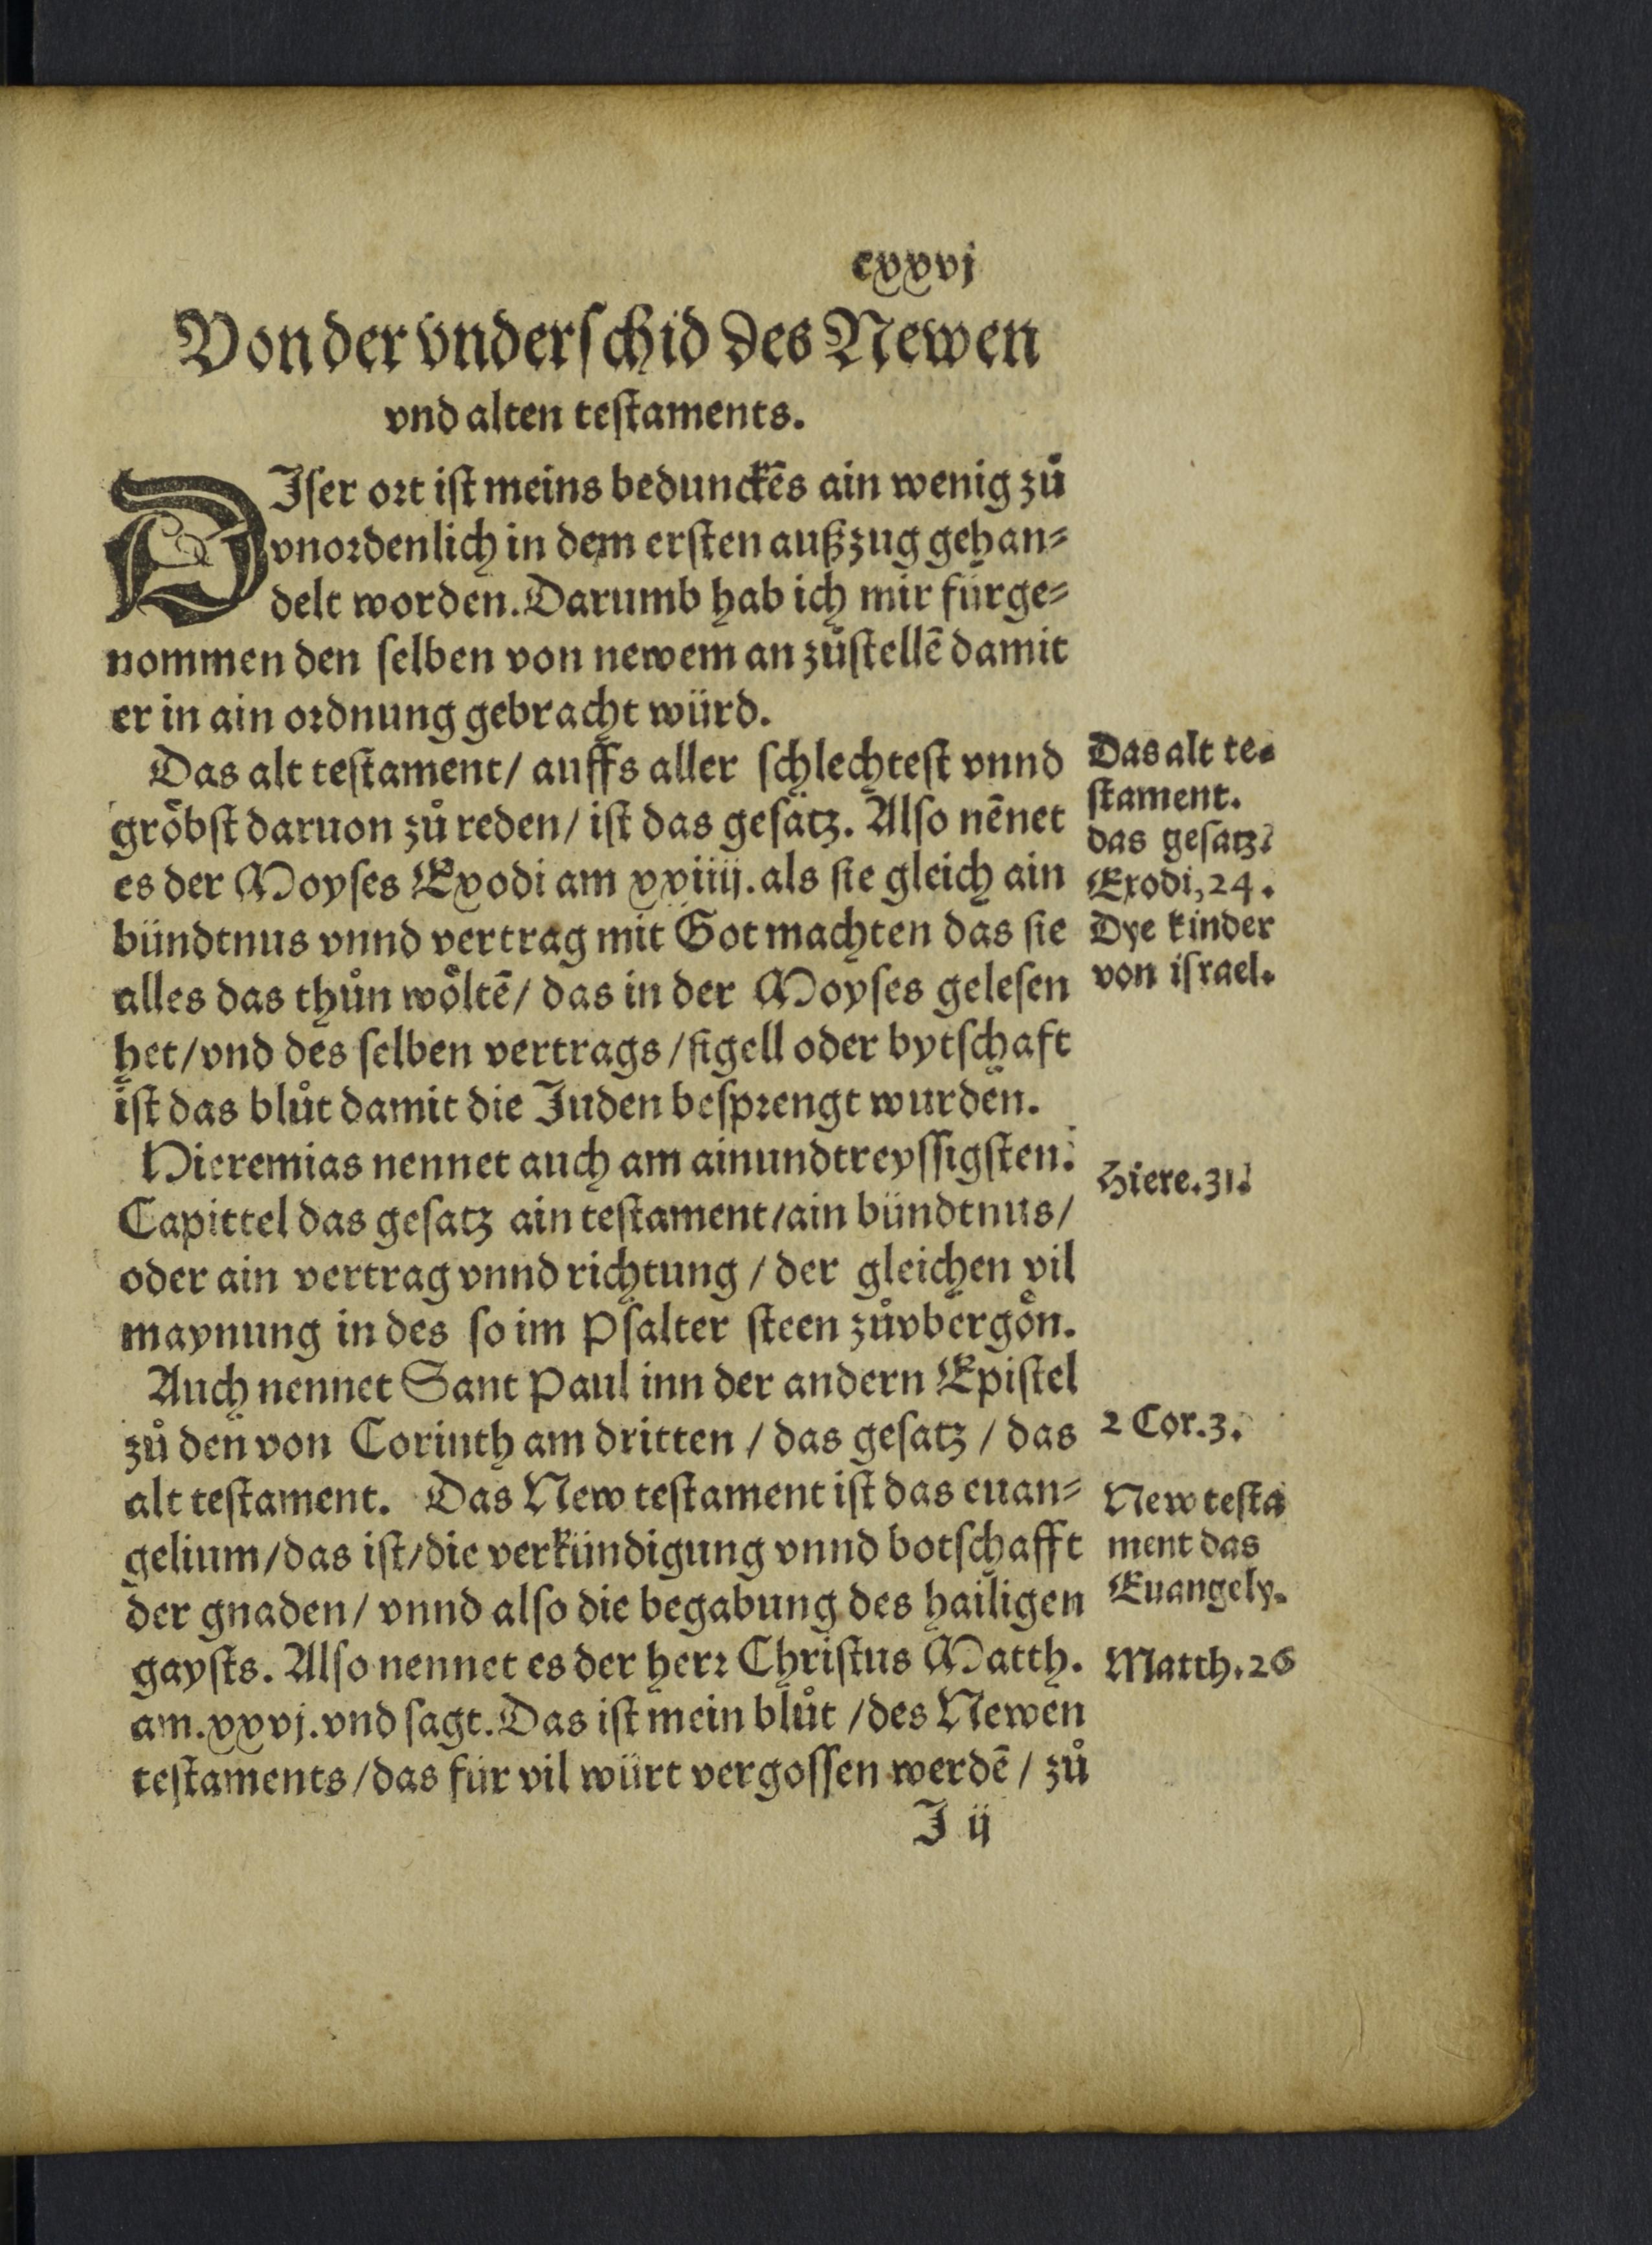 cxxvj
Von der vnderſchid des Newen
vnd alten teſtaments.
DIſer ort iſt meins bedunckēs ain wenig zů
vnordenlich in dem erſten außzug gehan⸗
delt worden. Darumb hab ich mir fürge⸗
nommen den ſelben von newem an zůſtellē damit
er in ain ordnung gebracht würd.
Das alt teſtament/ auffs aller ſchlechteſt vnnd
gröbſt daruon zů reden/ iſt das geſatz. Alſo nēnet
es der Moyſes Exodi am xxiiij. als ſie gleich ain
bündtnus vnnd vertrag mit Got machten das ſie
alles das thůn wöltē/ das in der Moyſes geleſen
het/vnd des ſelben vertrags/ſigell oder bytſchaft
iſt das blůt damit die Juden beſprengt wurden.
Hieremias nennet auch am ainundtreyſſigſten.
Capittel das geſatz ain teſtament/ain bündtnus/
oder ain vertrag vnnd richtung / der gleichen vil
maynung in des ſo im Pſalter ſteen zůvbergön.
Auch nennet Sant Paul inn der andern Epiſtel
zů den von Corinth am dritten / das geſatz / das
alt teſtament. Das New teſtament iſt das euan⸗
gelium/das iſt/die verkündigung vnnd botſchafft
der gnaden/ vnnd alſo die begabung des hailigen
gayſts. Alſo nennet es der herr Chriſtus Matth.
am.xxvj.vnd ſagt. Das iſt mein blůt /des Newen
teſtaments/das für vil würt vergoſſen werdē / zů
J ij
Das alt te⸗
ſtament.
das geſatz.
Exodi,24.
Dye kinder
von iſrael.
Hiere.31.
2 Cor.3.
New teſta
ment das
Euangely.
Matth.26